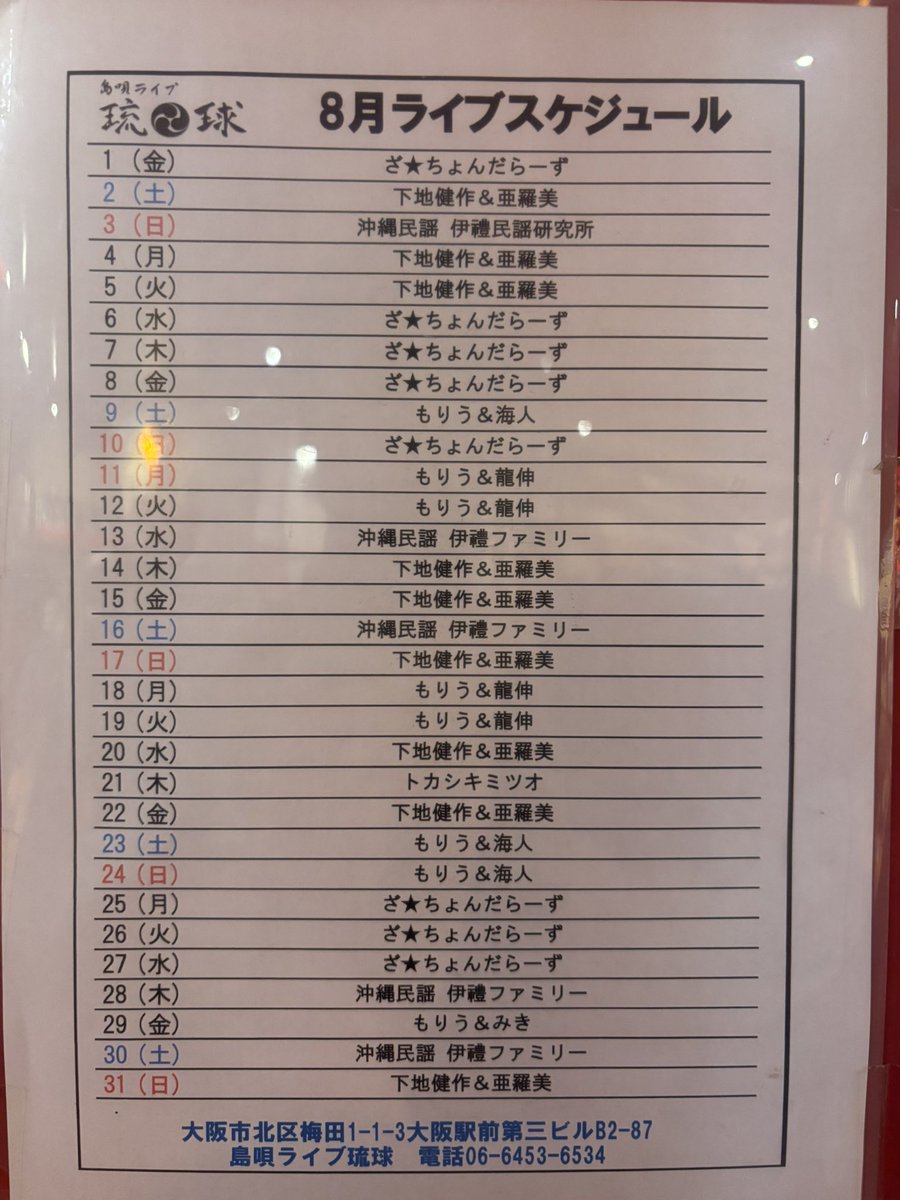 島唄ライブ
琉球 8月ライブスケジュール
1 (金) ざ★ちょんだらーず
2 (土) 下地健作&亜羅美
3 (日) 沖縄民謡 伊禮民謡研究所
4 (月) 下地健作&亜羅美
5 (火) 下地健作&亜羅美
6 (水) ざ★ちょんだらーず
7 (木) ざ★ちょんだらーず
8 (金) ざ★ちょんだらーず
9 (土) もりう&海人
10 (日) ざ★ちょんだらーず
11 (月) もりう&龍伸
12 (火) もりう&龍伸
13 (水) 沖縄民謡 伊禮ファミリー
14 (木) 下地健作&亜羅美
15 (金) 下地健作&亜羅美
16 (土) 沖縄民謡 伊禮ファミリー
17 (日) 下地健作&亜羅美
18 (月) もりう&龍伸
19 (火) もりう&龍伸
20 (水) 下地健作&亜羅美
21 (木) トカシキミツオ
22 (金) 下地健作&亜羅美
23 (土) もりう&海人
24 (日) もりう&海人
25 (月) ざ★ちょんだらーず
26 (火) ざ★ちょんだらーず
27 (水) ざ★ちょんだらーず
28 (木) 沖縄民謡 伊禮ファミリー
29 (金) もりう&みき
30 (土) 沖縄民謡 伊禮ファミリー
31 (日) 下地健作&亜羅美
大阪市北区梅田1-1-3大阪駅前第三ビルB2-87
島唄ライブ琉球 電話06-6453-6534